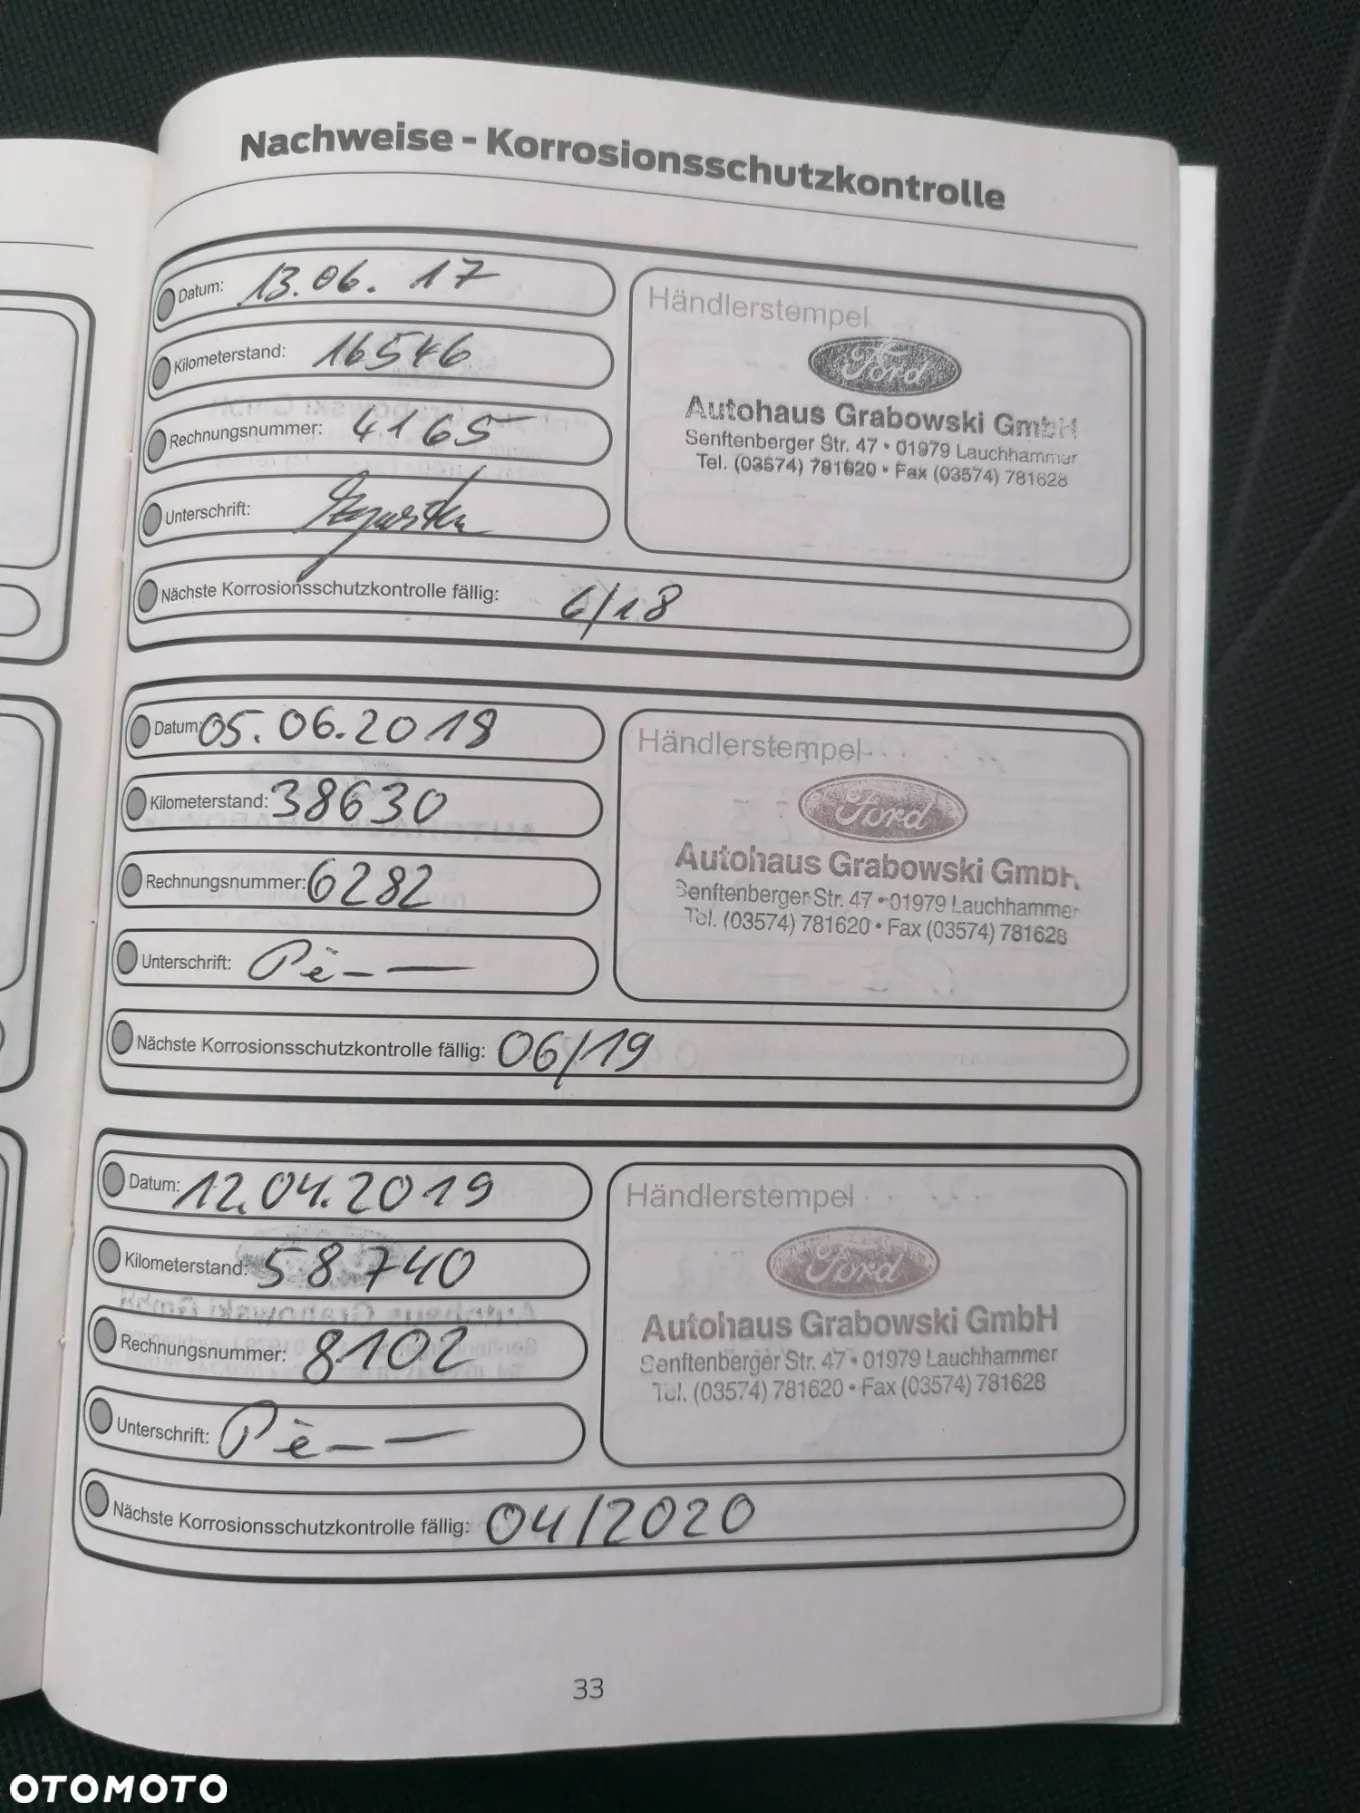 Nachweise - Korrosionsschutzkontrolle
Datum: 13.06.17
Kilometerstand: 16546
Rechnungsnummer: 4165
Unterschrift:
Nächste Korrosionsschutzkontrolle fällig: 6/18
Händlerstempel
Ford
Autohaus Grabowski GmbH
Senftenberger Str. 47 • 01979 Lauchhammer
Tel. (03574) 781620 • Fax (03574) 781628
Datum: 05.06.2018
Kilometerstand: 38630
Rechnungsnummer: 6282
Unterschrift:
Nächste Korrosionsschutzkontrolle fällig: 06/19
Händlerstempel
Ford
Autohaus Grabowski GmbH
Senftenberger Str. 47 • 01979 Lauchhammer
Tel. (03574) 781620 • Fax (03574) 781628
Datum: 12.04.2019
Kilometerstand: 58740
Rechnungsnummer: 8102
Unterschrift:
Nächste Korrosionsschutzkontrolle fällig: 04/2020
Händlerstempel
Ford
Autohaus Grabowski GmbH
Senftenberger Str. 47 • 01979 Lauchhammer
Tel. (03574) 781620 • Fax (03574) 781628
33
OTOMOTO